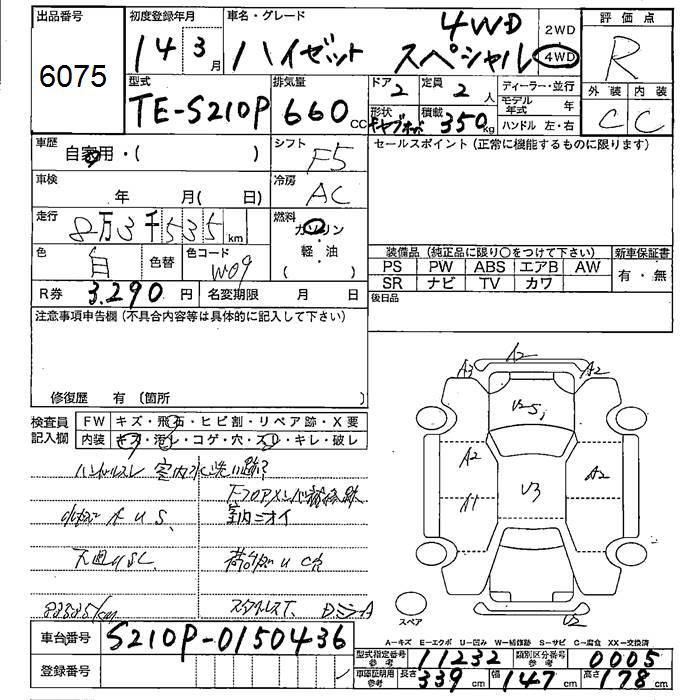 出品番号 初度登録年月 車名・グレード 4WD 2WD 評価点
6075 14 3月 ハイゼット スペシャル 4WD R
型式 排気量 ドア 定員 ディーラー・並行 外装 内装
TE-S210P 660cc 2 2人 モデル年式 年 C C
形状 積載 350kg ハンドル 左・右
車歴 自家用・( ) シフト F5 セールスポイント (正常に機能するものに限ります)
車検 年 月( 日) 冷房 AC
走行 8万3千535km 燃料 ガソリン・軽・油 ( )
色 白 色替 色コード W09
装備品 (純正品に限り○をつけて下さい) 新車保証書
PS PW ABS エアB AW 有・無
SR ナビ TV カワ
R券 3,290円 名変期限 月 日 後日品
注意事項申告欄 (不具合内容等は具体的に記入して下さい)
修復歴 有 (箇所 )
検査員記入欄 FW キズ・飛石・ヒビ割・リペア跡・X要
内装 キズ・汚レ・コゲ・穴・スレ・キレ・破レ
ハンドルスレ 室内水洗い跡?
室内ニオイ
83535km
A2
A3 A2
A2 V3 A2
A1
スペア U2
A-キズ E-エクボ U-凹み W-補修跡 S-サビ C-腐食 XX-交換済
車台番号 S210P-0150436
型式指定番号 参考 11232 類別区分番号 参考 0005
登録番号
車庫証明用 参考 長さ 339cm 幅 147cm 高さ 178cm